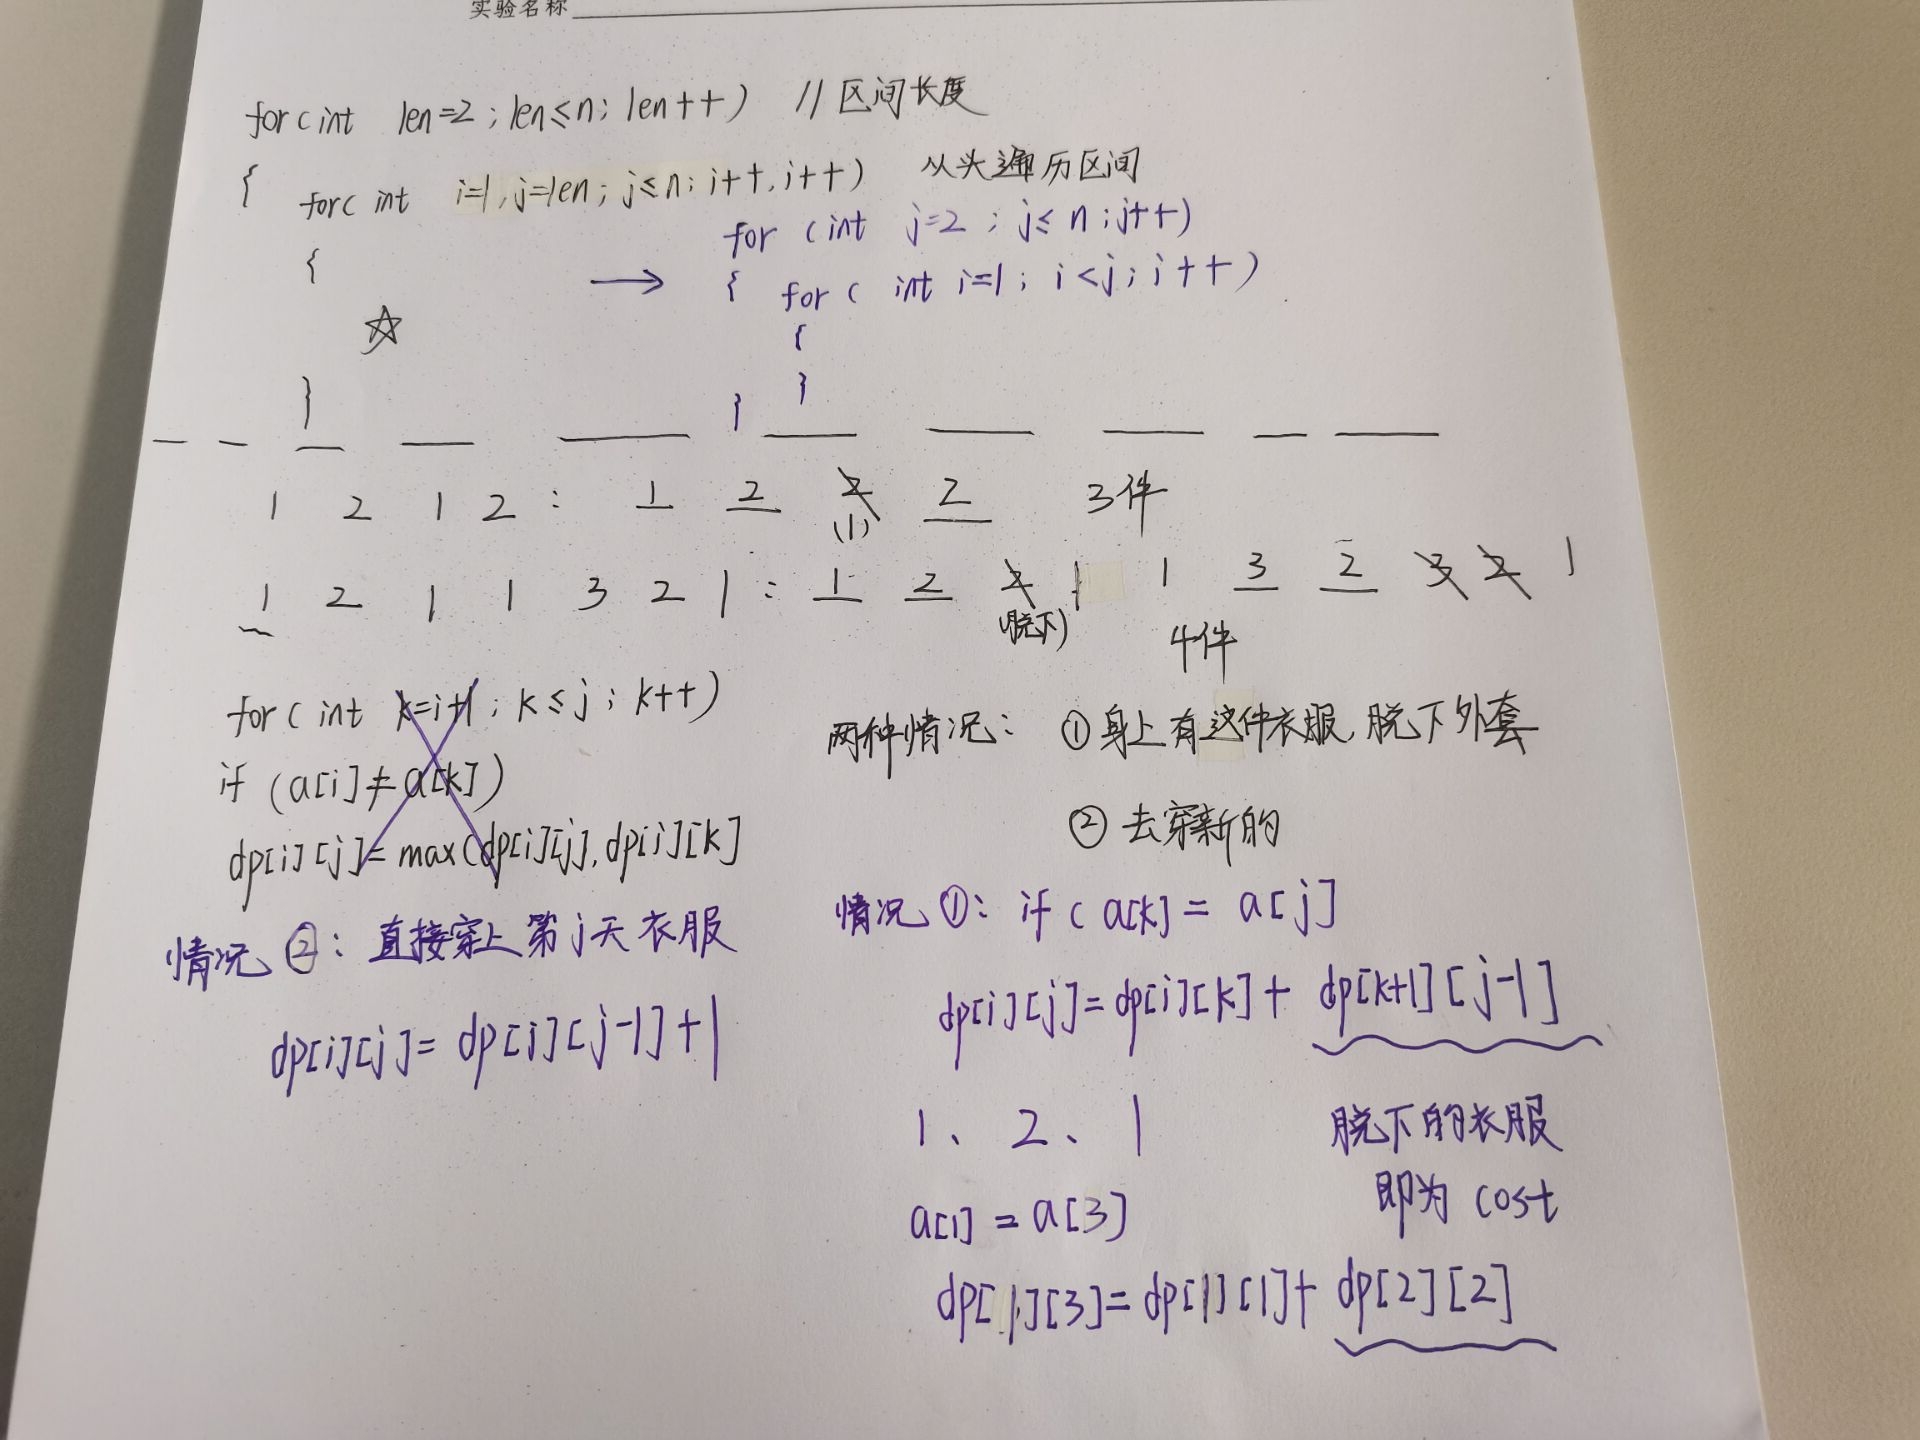 实验名称
for(int len=2;len≤n;len++) //区间长度
{ for(int i=1,j=len;j≤n;i++,i++) 从头遍历区间
{ → for (int j=2;j≤n;j++)
{ for(int i=1;i<j;i++)
☆ {
} }
}
1 2 1 2: 1 2 2 2 3件
(1)
1 2 1 1 3 2 1: 1 2 2 1 1 3 2 3 2 1
(脱下) 4件
for(int k=i+1;k≤j;k++)
if (a[i]≠a[k])
dp[i][j]=max(dp[i][j],dp[i][k]
两种情况: ①身上有这件衣服,脱下外套
②去穿新的
情况②:直接穿上第j天衣服
dp[i][j]=dp[i][j-1]+1
情况①: if(a[k]=a[j]
dp[i][j]=dp[i][k]+dp[k+1][j-1]
1、2、1 脱下的衣服
即为cost
a[1]=a[3]
dp[1][3]=dp[1][1]+dp[2][2]